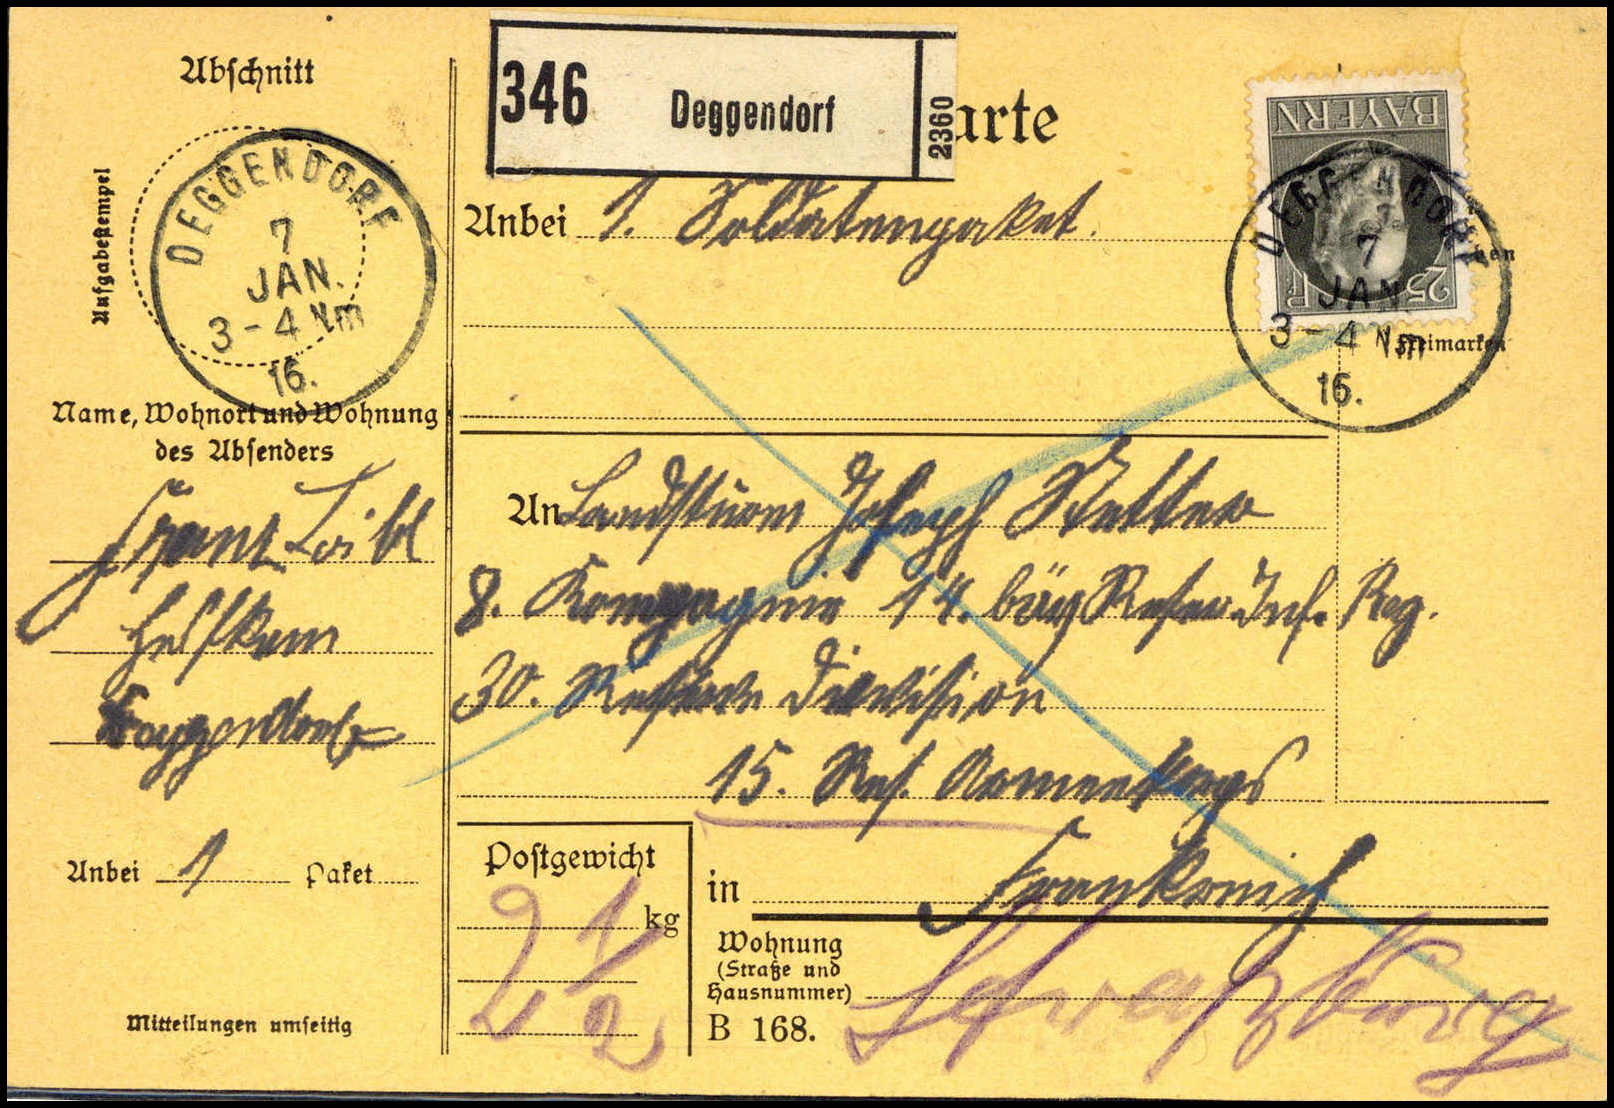 Abschnitt
Aufgabestempel
DEGGENDORF
7
JAN.
3-4 Nm
16.
Name, Wohnort und Wohnung
des Absenders
Franz Loibl
Deggendorf
Anbei 1 Paket
Mitteilungen umseitig
346 Deggendorf 2360
arte
Anbei 1. Soldatenpaket.
BAYERN
25 Pf
DEGGENDORF
7
JAN.
3-4 Nm
16.
Freimarken
An Landsturm Joseph Vetter
8. Kompagnie 14. bay Reserv Inf. Reg.
30. Reserve Division
15. Res. Armeekorps
Postgewicht
2 1/2 kg
in Frankreich
Wohnung
(Straße und
Hausnummer)
B 168.